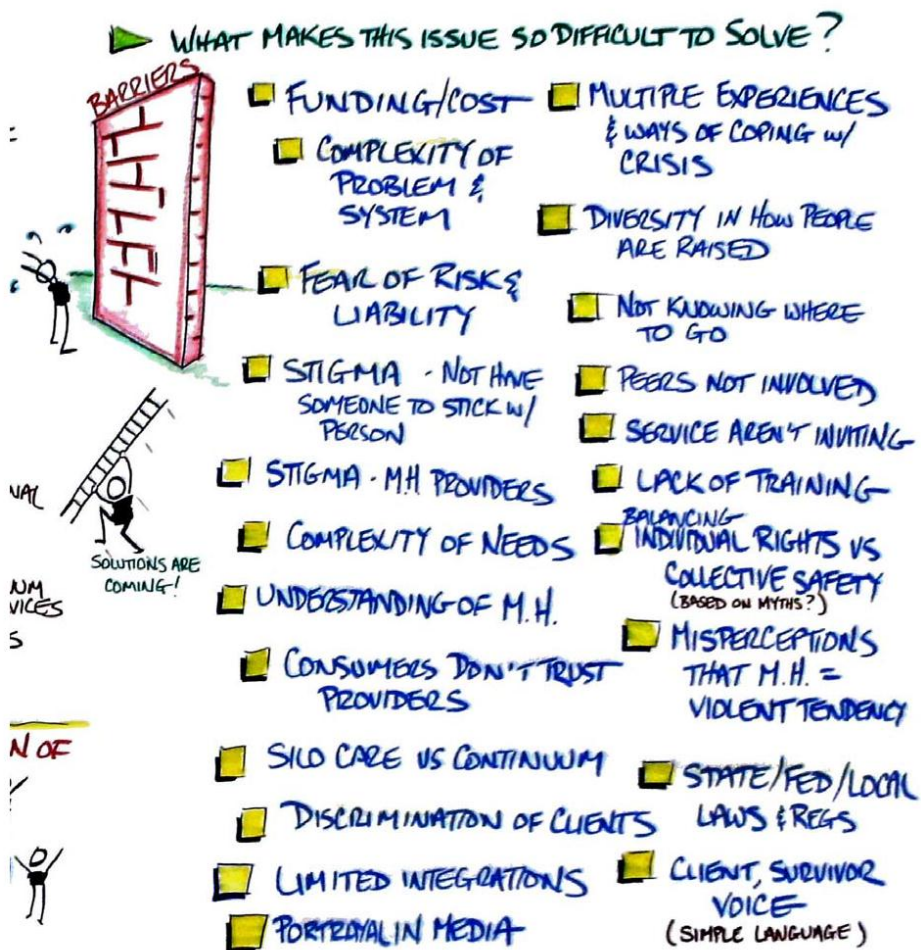 WHAT MAKES THIS ISSUE SO DIFFICULT TO SOLVE?
BARRIERS
FUNDING/COST
COMPLEXITY OF
PROBLEM &
SYSTEM
FEAR OF RISK &
LIABILITY
STIGMA - NOT HAVE
SOMEONE TO STICK W/
PERSON
STIGMA - M.H. PROVIDERS
COMPLEXITY OF NEEDS
UNDERSTANDING OF M.H.
CONSUMERS DON'T TRUST
PROVIDERS
SILO CARE VS CONTINUUM
DISCRIMINATION OF CLIENTS
LIMITED INTEGRATIONS
PORTRAYAL IN MEDIA
MULTIPLE EXPERIENCES
& WAYS OF COPING W/
CRISIS
DIVERSITY IN HOW PEOPLE
ARE RAISED
NOT KNOWING WHERE
TO GO
PEERS NOT INVOLVED
SERVICE AREN'T INVITING
LACK OF TRAINING
BALANCING
INDIVIDUAL RIGHTS VS
COLLECTIVE SAFETY
(BASED ON MYTHS?)
MISPERCEPTIONS
THAT M.H. =
VIOLENT TENDENCY
STATE/FED/LOCAL
LAWS & REGS
CLIENT, SURVIVOR
VOICE
(SIMPLE LANGUAGE)
SOLUTIONS ARE
COMING!
NAL
UM
VICES
S
N OF